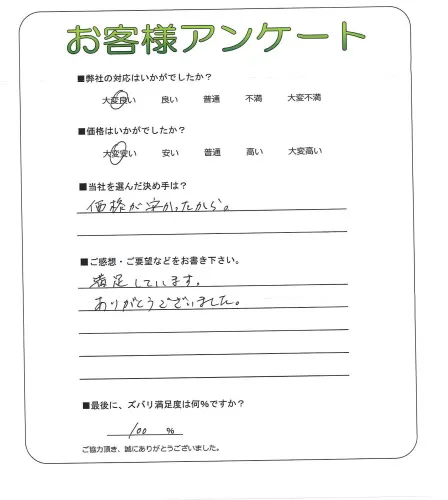 お客様アンケート
■弊社の対応はいかがでしたか？
大変良い 良い 普通 不満 大変不満
■価格はいかがでしたか？
大変安い 安い 普通 高い 大変高い
■当社を選んだ決め手は？
価格が安かったから。
■ご感想・ご要望などをお書き下さい。
満足しています。
ありがとうございました。
■最後に、ズバリ満足度は何％ですか？
100 %
ご協力頂き、誠にありがとうございました。